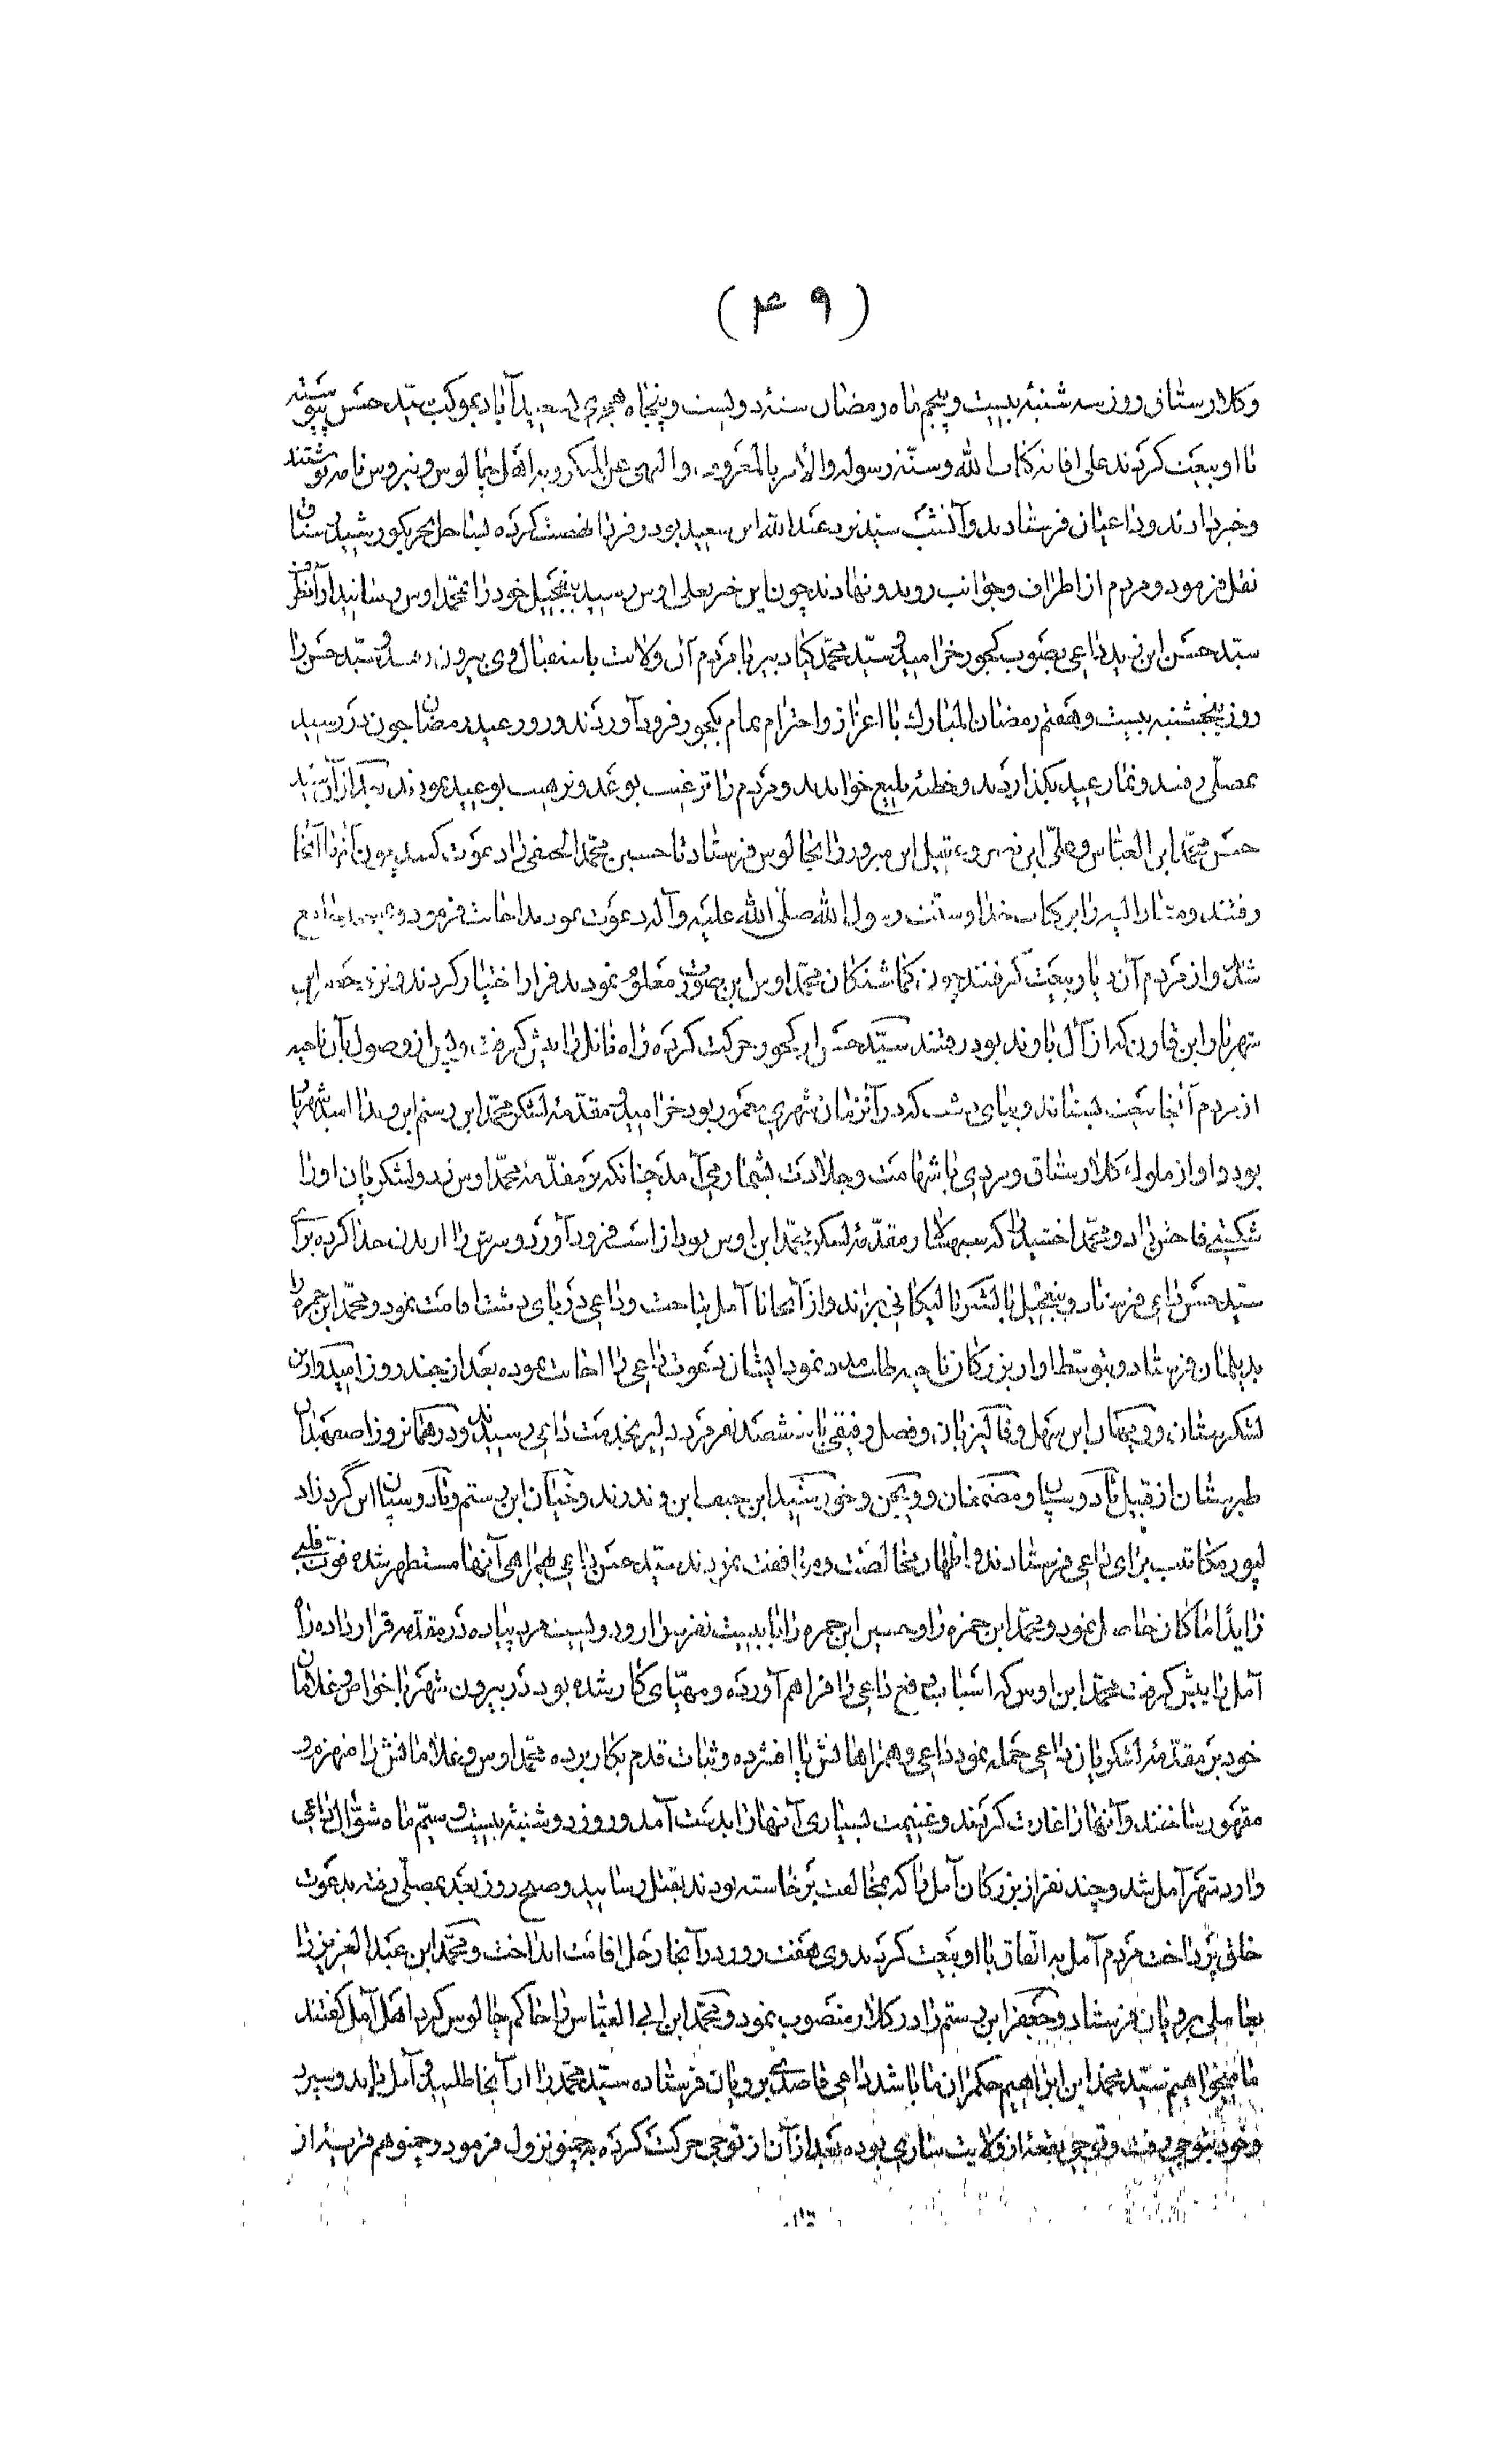 ( ۴۹ )
وکلارستاقی روز سه شنبهٔ بیست و پنجم ماه رمضان سنهٔ دولیست و پنجاه هجری سعید آباد بموکب سیّد حسن پیوسته
با او بیعت کردند علی اقامة کتاب الله وسنّة رسوله والأمر بالمعروف والنهی عن المنکر وبه اهل چالوس و نیروس نامه نوشتند
وخبر دادند وداعیان فرستادند وآنشب سیّد نزد عبدالله ابن سعید بود وفردا نهضت کرده بساحل بحر بکورشید رستاق
نقل فرمود ومردم از اطراف وجوانب روبدو نهادند چون این خبر بعلی اوس رسید بتعجیل خود را بمحمّد اوس رسانید از آنطرف
سیّد حسن ابن زید داعی بصوب کجور خرامید وسیّد محمّد کیا دبیر با مردم آن ولایت باستقبال وی بیرون رفت وسیّد حسن را
روز پنجشنبه بیست وهفتم رمضان المبارك با اعزاز واحترام تمام بکجور فرود آوردند وروز عید رمضان چون در رسید
بمصلّی رفتند ونماز عید بگذاردند وخطبهٔ بلیغ خواندند ومردم را ترغیب بوعد وترهیب بوعید نمودند بعد از آن سیّد
حسن محمّد ابن العبّاس وعلیّ ابن نصر وعقیل ابن مبرور را بچالوس فرستاد تا حسین محمّد الحنفی را دعوت کنند چون آنها آنجا
رفتند ومشارالیه را بر کتاب خدا وسنّت رسول الله صلّی الله علیه وآله دعوت نمودند اجابت فرمود و جامع
شد واز مردم آن دیار بیعت گرفتند چون گماشتگان محمّد اوس این صورت معلوم نمودند فرار اختیار کردند ونزد جعفر ابن
شهریار ابن قارن که از آل باوند بود رفتند سیّد حسن از کجور حرکت کرده راه ناتل را پیش گرفت وپس از وصول بآن ناحیه
از مردم آنجا بیعت بستاند وبپای دشت که در آنزمان شهری معمور بود خرامید ومقدّمهٔ لشکر محمّد ابن رستم ابن وندا امید شهریار
بود واو از ملوك کلارستاق ومردی با شهامت وجلادت بشمار می آمد چنانکه بر مقدّمهٔ محمّد اوس زد ولشکریان اورا
شکستهٔ فاحش داد ومحمّد اخشید را که سپهسالار مقدّمهٔ لشکر محمّد ابن اوس بود از اسب فرود آورد وسرش را از بدن جدا کرده برای
سیّد حسن داعی فرستاد وبتعجیل با لشکر تا لیکانی براند واز آنجا تا آمل بتاخت وداعی در پای دشت اقامت نمود ومحمّد ابن حمزه را
بدیلمان فرستاد وبتوسّط او از بزرگان ناحیه طلب مدد نمود ایشان دعوت داعی را اجابت نموده بعد از چند روز امیدوار بن
لشکرستان وویهان ابن سهل وفالیزبان وفضل رفیقی با ششصد نفر مرد دلیر بخدمت داعی رسیدند ودر همانروز اصفهبدان
طبرستان از قبیل پادوسپان ومصمغان وویجن وخورشید ابن جسنف ابن وندرند وخیان ابن رستم وپادوسپان ابن گردزاد
لپور مکاتیب برای داعی فرستادند واظهار مخالصت وموافقت نمودند سیّد حسن داعی بهمراهی آنها مستظهر شده قوّت قلبی
زایداً ما کان حاصل نمود ومحمّد ابن حمزه را وحسین ابن حمزه را با بیست نفر سوار ودولیست مرد پیاده در مقدّمه قرار داده راه
آمل را پیش گرفت محمّد ابن اوس که اسباب دفع داعی را فراهم آورده ومهیّای کار شده بود در بیرون شهر با خواص وغلامان
خود بر مقدّمهٔ لشکریان داعی حمله نمود داعی وهمراهانش پا افشرده وثبات قدم بکار برده محمّد اوس وغلامانش را منهزم و
مقهور ساختند وآنها را غارت کردند وغنیمت بسیاری آنها را بدست آمد وروز دوشنبهٔ بیست وسیّم ماه شوّال داعی
وارد شهر آمل شد وچند نفر از بزرگان آمل را که بمخالفت برخاسته بودند بقتل رسانید وصبح روز بعد بمصلّی رفته بدعوت
خلق پرداخت مردم آمل به اتّفاق با او بیعت کردند وی هفت روز در آنجا رحل اقامت انداخت ومحمّد ابن عبد العزیز را
بعاملی برویان فرستاد وجعفر ابن رستم را در کلار منصوب نمود ومحمّد ابن ابی العبّاس را حاکم چالوس کرد اهل آمل گفتند
ما میخواهیم سیّد محمّد ابن ابراهیم حکمران ما باشد داعی قاصدی برویان فرستاده سیّد محمّد را از آنجا طلبید وآمل را بدو سپرد
وخود بتوجی رفت وتوجی بقعهٔ از ولایت ساری بوده بعد از آن از توجی حرکت کرده به چمنو نزول فرمود وچمنو هم قریهٔ از